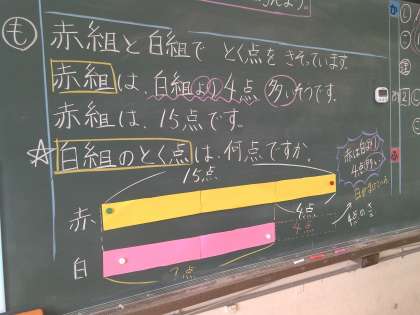 も
赤組と白組で とく点を きそっています。
赤組は、白組より 4点 多いそうです。
赤組は、15点です。
☆白組のとく点は、何点ですか。
赤は白より
4点多い
15点
赤
4点
4点
4点のさ
白
?点